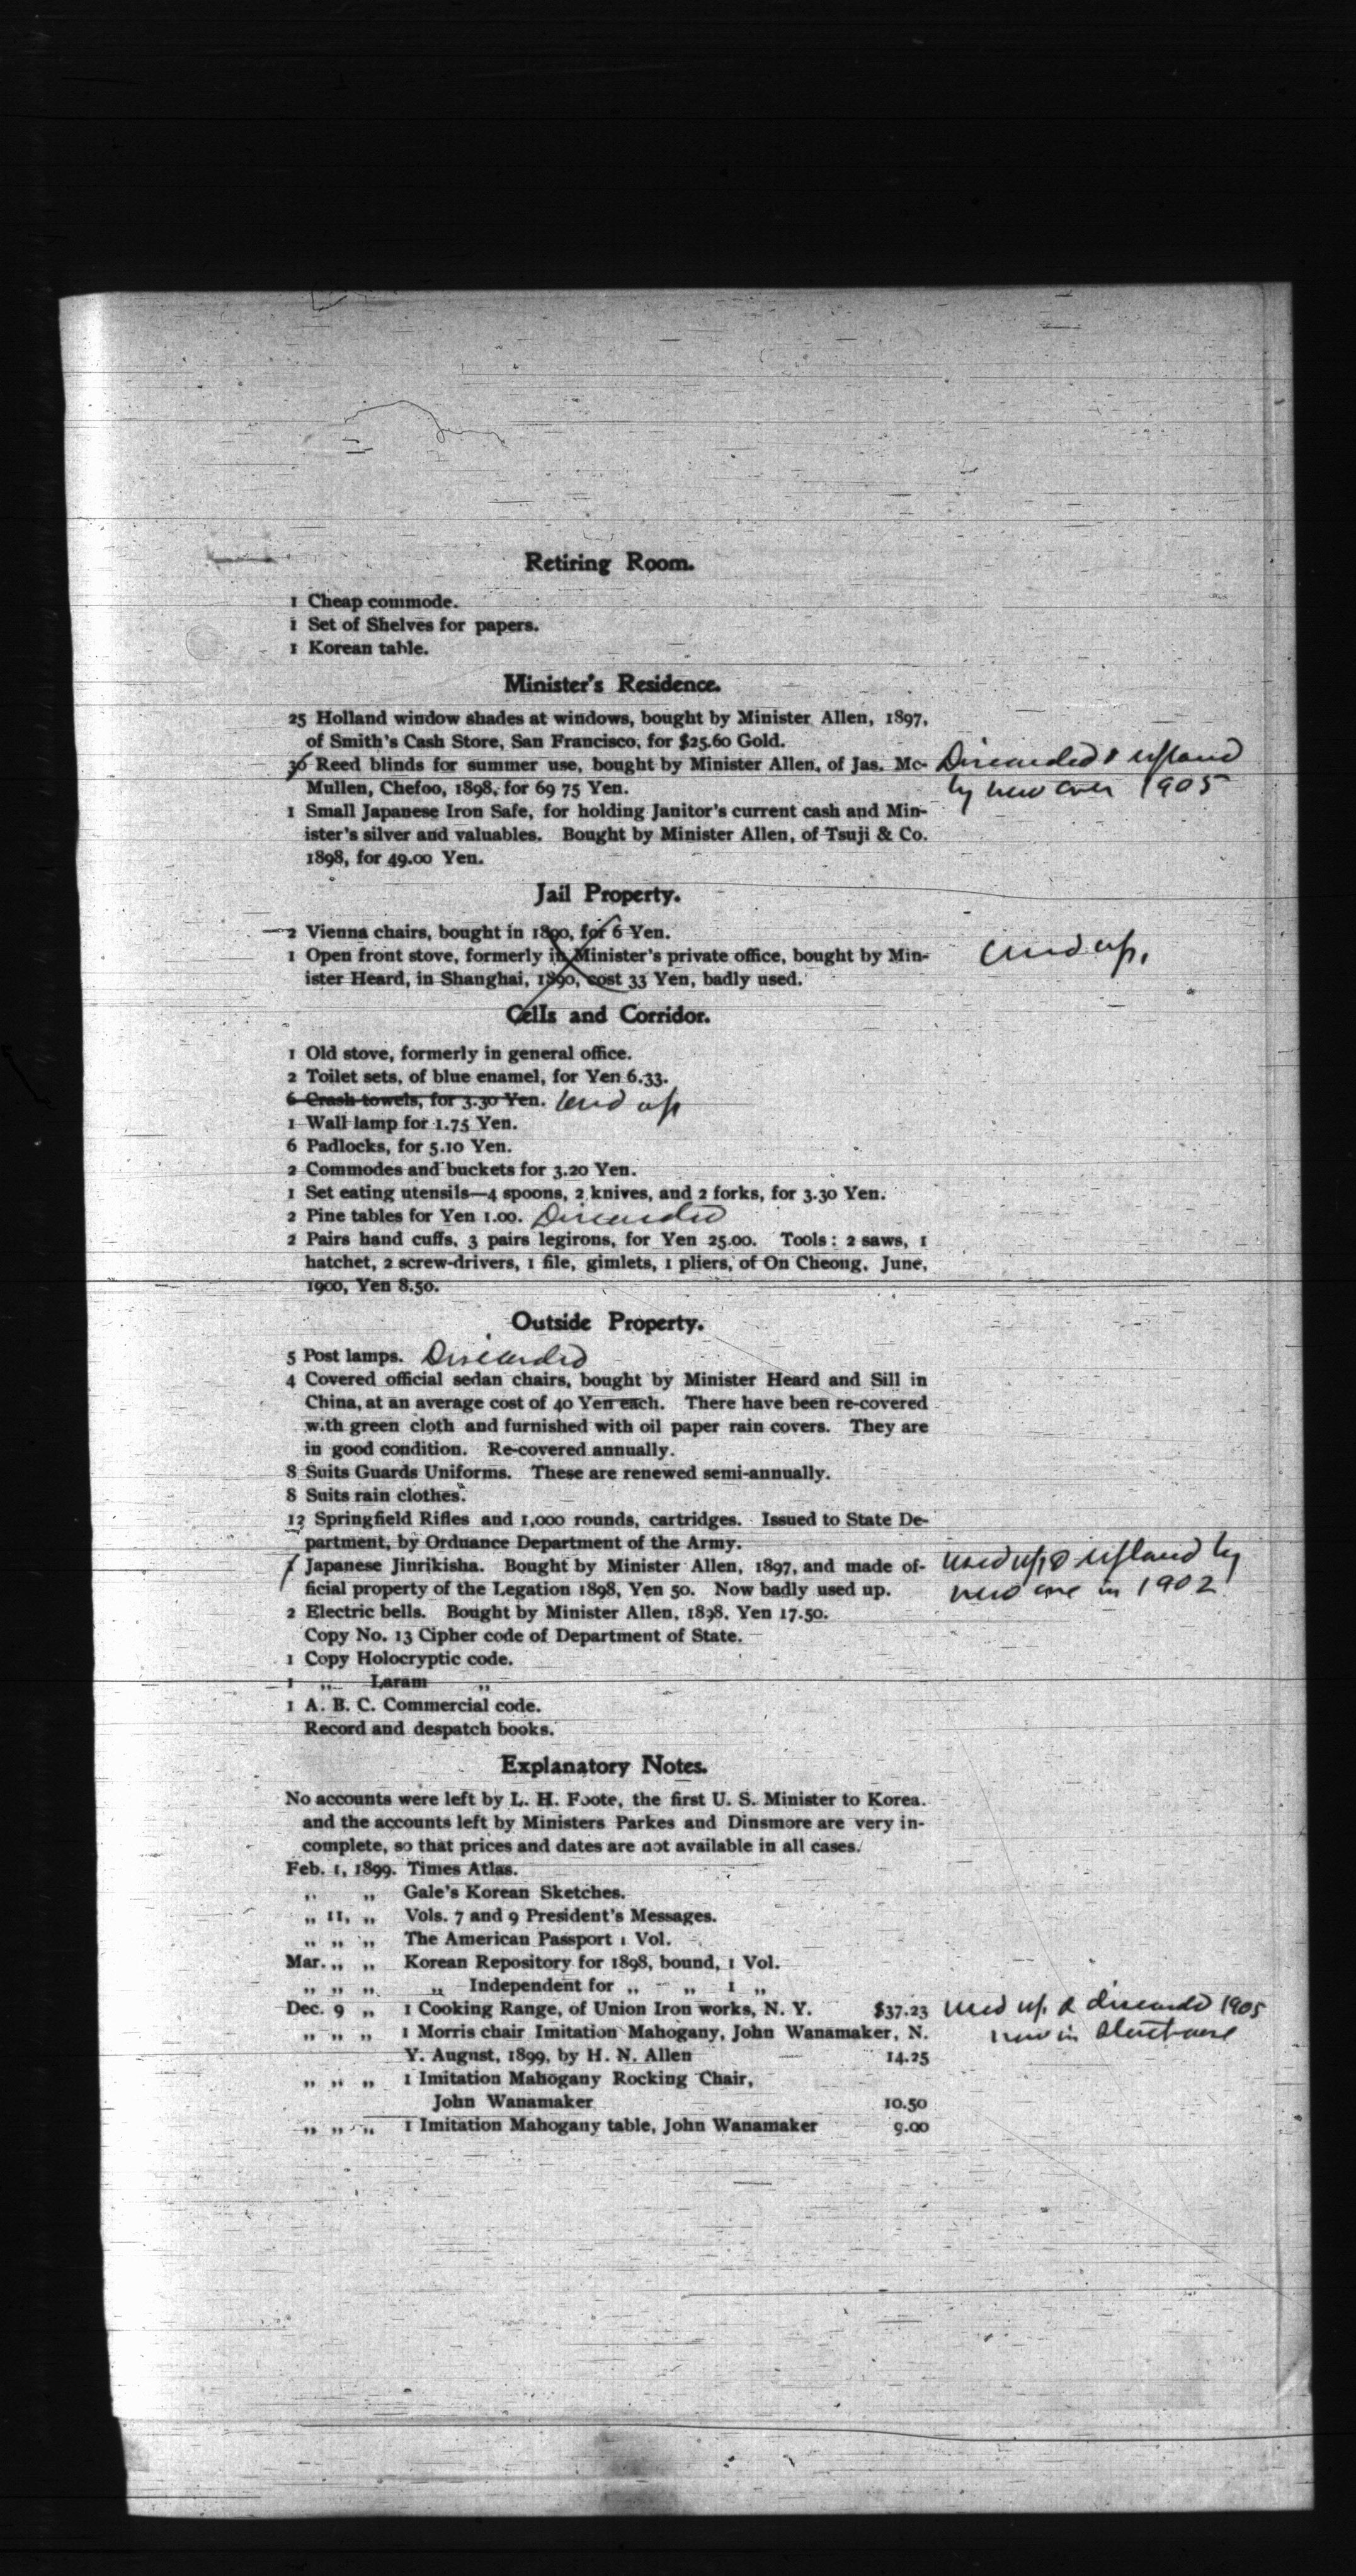 Retiring Room.
1 Cheap commode.
1 Set of Shelves for papers.
1 Korean table.
Minister's Residence.
25 Holland window shades at windows, bought by Minister Allen, 1897,
of Smith's Cash Store, San Francisco, for $25.60 Gold.
36 Reed blinds for summer use, bought by Minister Allen, of Jas. Mc- Discarded &
Mullen, Chefoo, 1898, for 69 75 Yen. by new 1905
1 Small Japanese Iron Safe, for holding Janitor's current cash and Min-
ister's silver and valuables. Bought by Minister Allen, of Tsuji & Co.
1898, for 49.00 Yen.
Jail Property.
2 Vienna chairs, bought in 1890, for 6 Yen.
1 Open front stove, formerly in Minister's private office, bought by Min- used up.
ister Heard, in Shanghai, 1890, cost 33 Yen, badly used.
Cells and Corridor.
1 Old stove, formerly in general office.
2 Toilet sets, of blue enamel, for Yen 6.33.
6 Crash towels, for 3.30 Yen. used up
1 Wall lamp for 1.75 Yen.
6 Padlocks, for 5.10 Yen.
2 Commodes and buckets for 3.20 Yen.
1 Set eating utensils—4 spoons, 2 knives, and 2 forks, for 3.30 Yen.
2 Pine tables for Yen 1.00. Discarded
2 Pairs hand cuffs, 3 pairs legirons, for Yen 25.00. Tools: 2 saws, 1
hatchet, 2 screw-drivers, 1 file, gimlets, 1 pliers, of On Cheong, June,
1900, Yen 8.50.
Outside Property.
5 Post lamps. Discarded
4 Covered official sedan chairs, bought by Minister Heard and Sill in
China, at an average cost of 40 Yen each. There have been re-covered
w.th green cloth and furnished with oil paper rain covers. They are
in good condition. Re-covered annually.
8 Suits Guards Uniforms. These are renewed semi-annually.
8 Suits rain clothes.
12 Springfield Rifles and 1,000 rounds, cartridges. Issued to State De-
partment, by Orduance Department of the Army.
1 Japanese Jinrikisha. Bought by Minister Allen, 1897, and made of- used up & replaced by
ficial property of the Legation 1898, Yen 50. Now badly used up. new one in 1902
2 Electric bells. Bought by Minister Allen, 1898, Yen 17.50.
Copy No. 13 Cipher code of Department of State.
1 Copy Holocryptic code.
1 „ Laram „
1 A. B. C. Commercial code.
Record and despatch books.
Explanatory Notes.
No accounts were left by L. H. Foote, the first U. S. Minister to Korea.
and the accounts left by Ministers Parkes and Dinsmore are very in-
complete, so that prices and dates are not available in all cases.
Feb. 1, 1899. Times Atlas.
„ „ Gale's Korean Sketches.
„ 11, „ Vols. 7 and 9 President's Messages.
„ „ „ The American Passport 1 Vol.
Mar. „ „ Korean Repository for 1898, bound, 1 Vol.
„ „ „ „ Independent for „ „ 1 „
Dec. 9 „ 1 Cooking Range, of Union Iron works, N. Y. $37.23 used up & discarded 1905
„ „ „ 1 Morris chair Imitation Mahogany, John Wanamaker, N. new in
Y. August, 1899, by H. N. Allen 14.25
„ „ „ 1 Imitation Mahogany Rocking Chair,
John Wanamaker 10.50
„ „ „ 1 Imitation Mahogany table, John Wanamaker 9.00